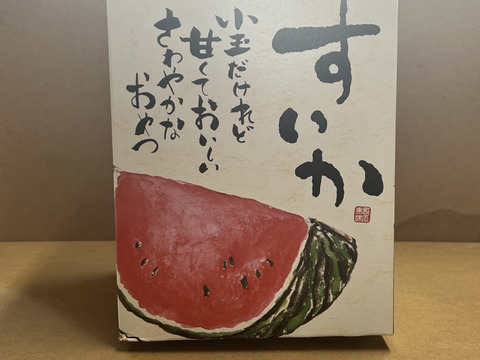 すいか
小玉だけれど
甘くておいしい
さわやかな
おやつ